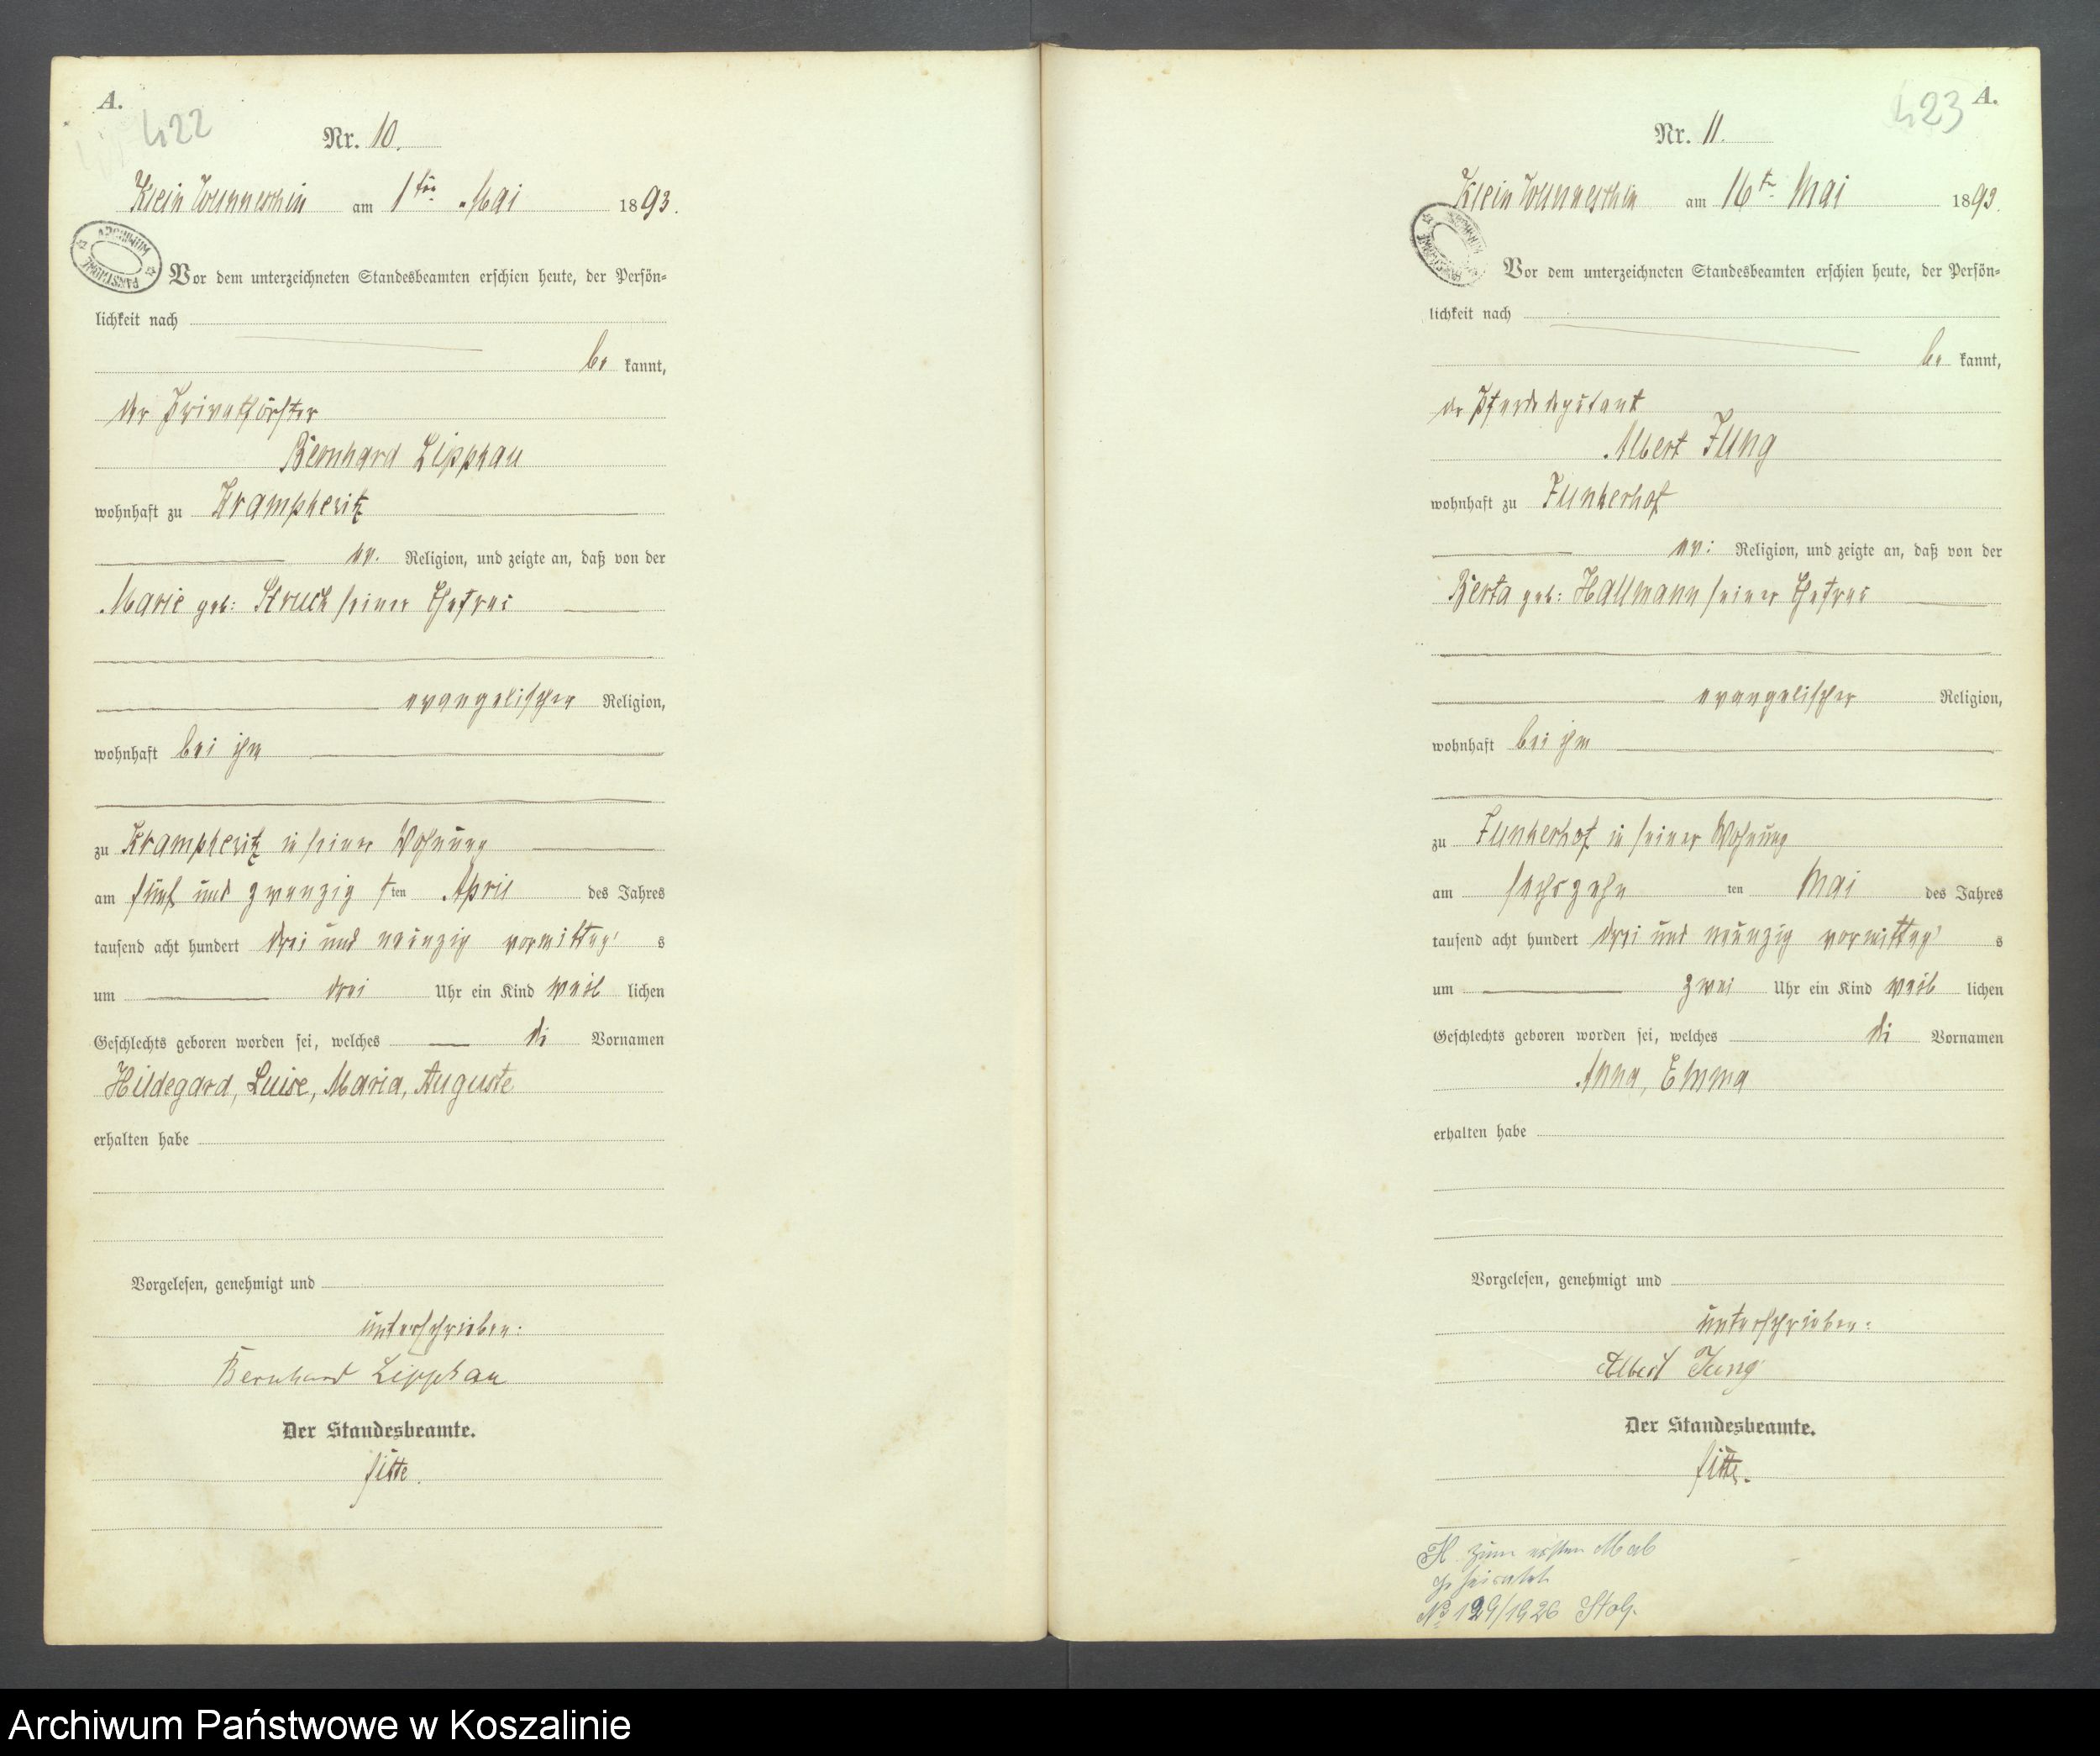 A.
422
Nr. 10.
Klein Wunneschin am 1ten Mai 1893.
ARCHIWUM PAŃSTWOWE
Vor dem unterzeichneten Standesbeamten erschien heute, der Persön-
lichkeit nach
be kannt,
der Privatförster
Bernhard Lippkau
wohnhaft zu Krampkeritz
ev. Religion, und zeigte an, daß von der
Marie geb: Struck seiner Ehefrau
evangelischer Religion,
wohnhaft bei ihm
zu Krampkeritz in seiner Wohnung
am fünf und zwanzigsten April des Jahres
tausend acht hundert drei und neunzig vormittags
um drei Uhr ein Kind weiblichen
Geschlechts geboren worden sei, welches die Vornamen
Hildegard, Luise, Maria, Auguste
erhalten habe
Vorgelesen, genehmigt und
unterschrieben:
Bernhard Lippkau
Der Standesbeamte.
A.
423
Nr. 11.
Klein Wunneschin am 16ten Mai 1893.
Vor dem unterzeichneten Standesbeamten erschien heute, der Persön-
lichkeit nach
be kannt,
der Pferdedeputant
Albert Jung
wohnhaft zu Junkerhof
ev: Religion, und zeigte an, daß von der
Berta geb: Hallmann seiner Ehefrau
evangelischer Religion,
wohnhaft bei ihm
zu Junkerhof in seiner Wohnung
am sechszehn ten Mai des Jahres
tausend acht hundert drei und neunzig vormittags
um zwei Uhr ein Kind weiblichen
Geschlechts geboren worden sei, welches die Vornamen
Anna, Emma
erhalten habe
Vorgelesen, genehmigt und
unterschrieben:
Albert Jung
Der Standesbeamte.
H. zum ersten Mal
geheiratet
No 129/1926 Stolp.
Archiwum Państwowe w Koszalinie